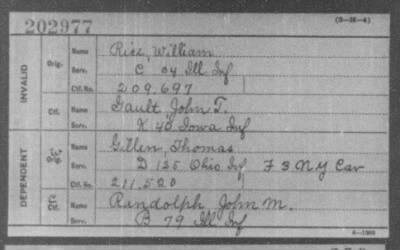 202977
(3-2E-4)
INVALID
Orig.
Name Rice, William
Serv. C 64 Ill Inf
Ctf. No. 209,697
Ctf.
Name Gault, John T.
Serv. K 40 Iowa Inf
DEPENDENT
Orig.
Name Gillen, Thomas
Serv. D 125 Ohio Inf F 3 N Y Cav
Ctf. No. 211,520
Name Randolph John M.
Serv. B 79 Ill Inf